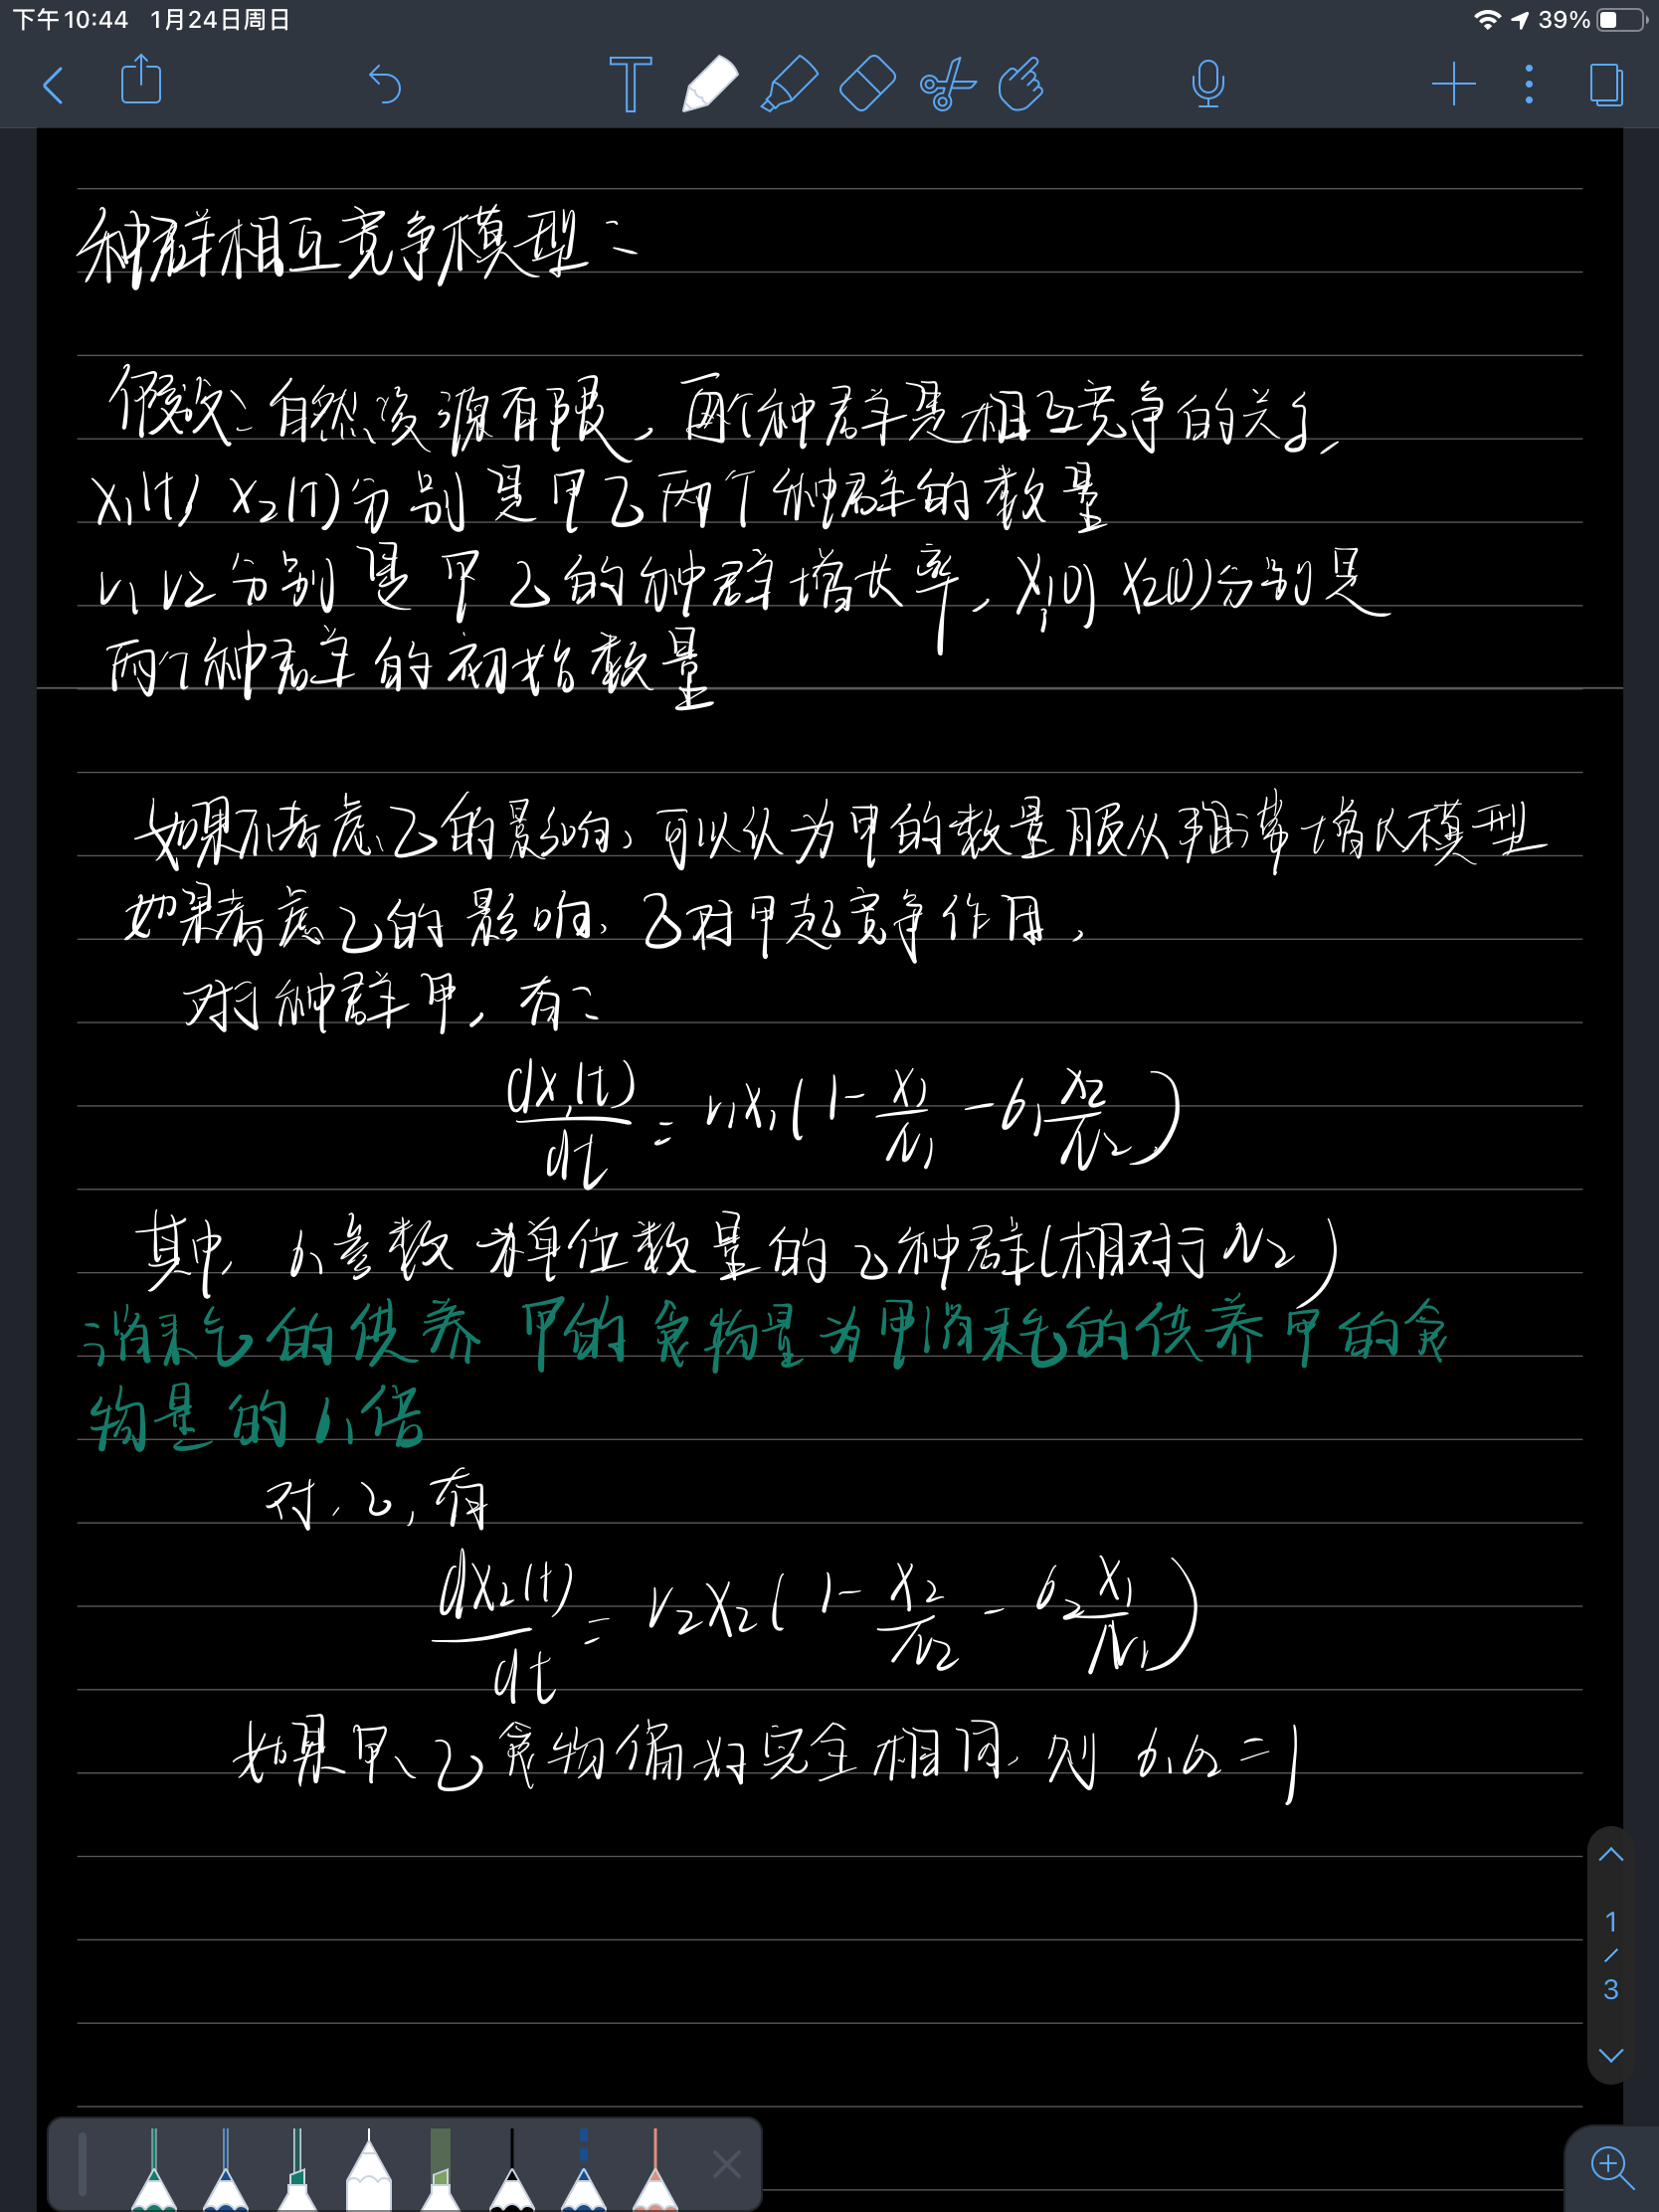 下午10:44 1月24日周日
39%
种群相互竞争模型：
假设：自然资源有限，两个种群是相互竞争的关系，
x₁(t) x₂(t)分别是甲乙两个种群的数量
r₁ r₂分别是甲乙的种群增长率，x₁(0) x₂(0)分别是
两个种群的初始数量
如果不考虑乙的影响，可以认为甲的数量服从阻滞增长模型
如果考虑乙的影响，乙对甲起竞争作用，
对于种群甲，有：
dx₁(t)/dt = r₁x₁(1-x₁/N₁-6₁x₂/N₂)
其中，6₁参数为单位数量的乙种群(相对于N₂)
消耗的供养甲的食物量为甲消耗的供养甲的食
物量的6₁倍
对，乙，有
dx₂(t)/dt = r₂x₂(1-x₂/N₂-6₂x₁/N₁)
如果甲、乙食物偏好完全相同，则6₁6₂=1
1
/
3